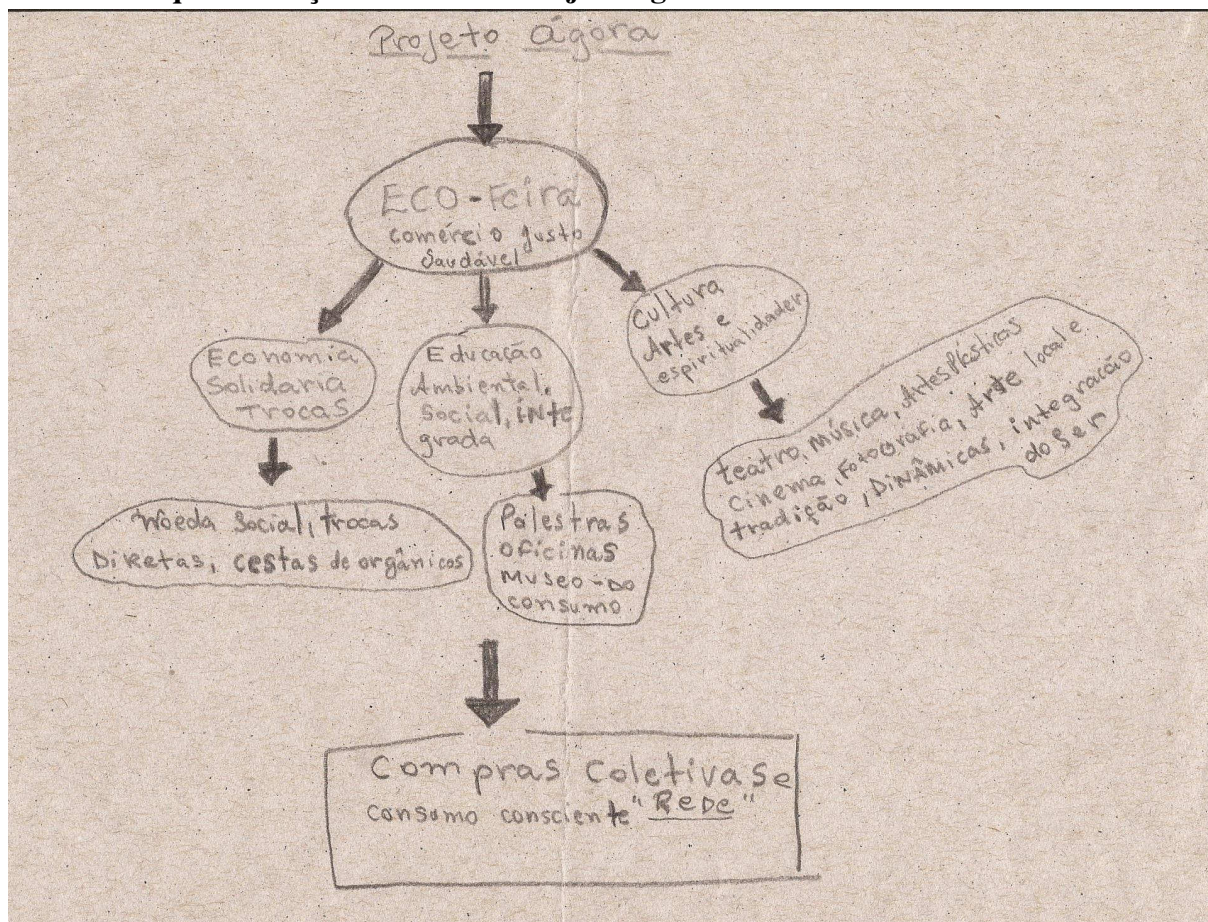 Projeto ágora
ECO-Feira
comércio justo
Saudável
Economia
Solidaria
Trocas
Educação
Ambiental,
Social, iNte
grada
Cultura
Artes e
espiritualidades
Moeda Social, trocas
Diretas, cestas de orgânicos
Palestras
oficinas
Museo-do
consumo
teatro, música, Artes Plásticas
cinema, Fotografia, Arte local e
tradição, DiNÂmicas, integração
do Ser
Compras Coletivas e
consumo consciente "ReDe"